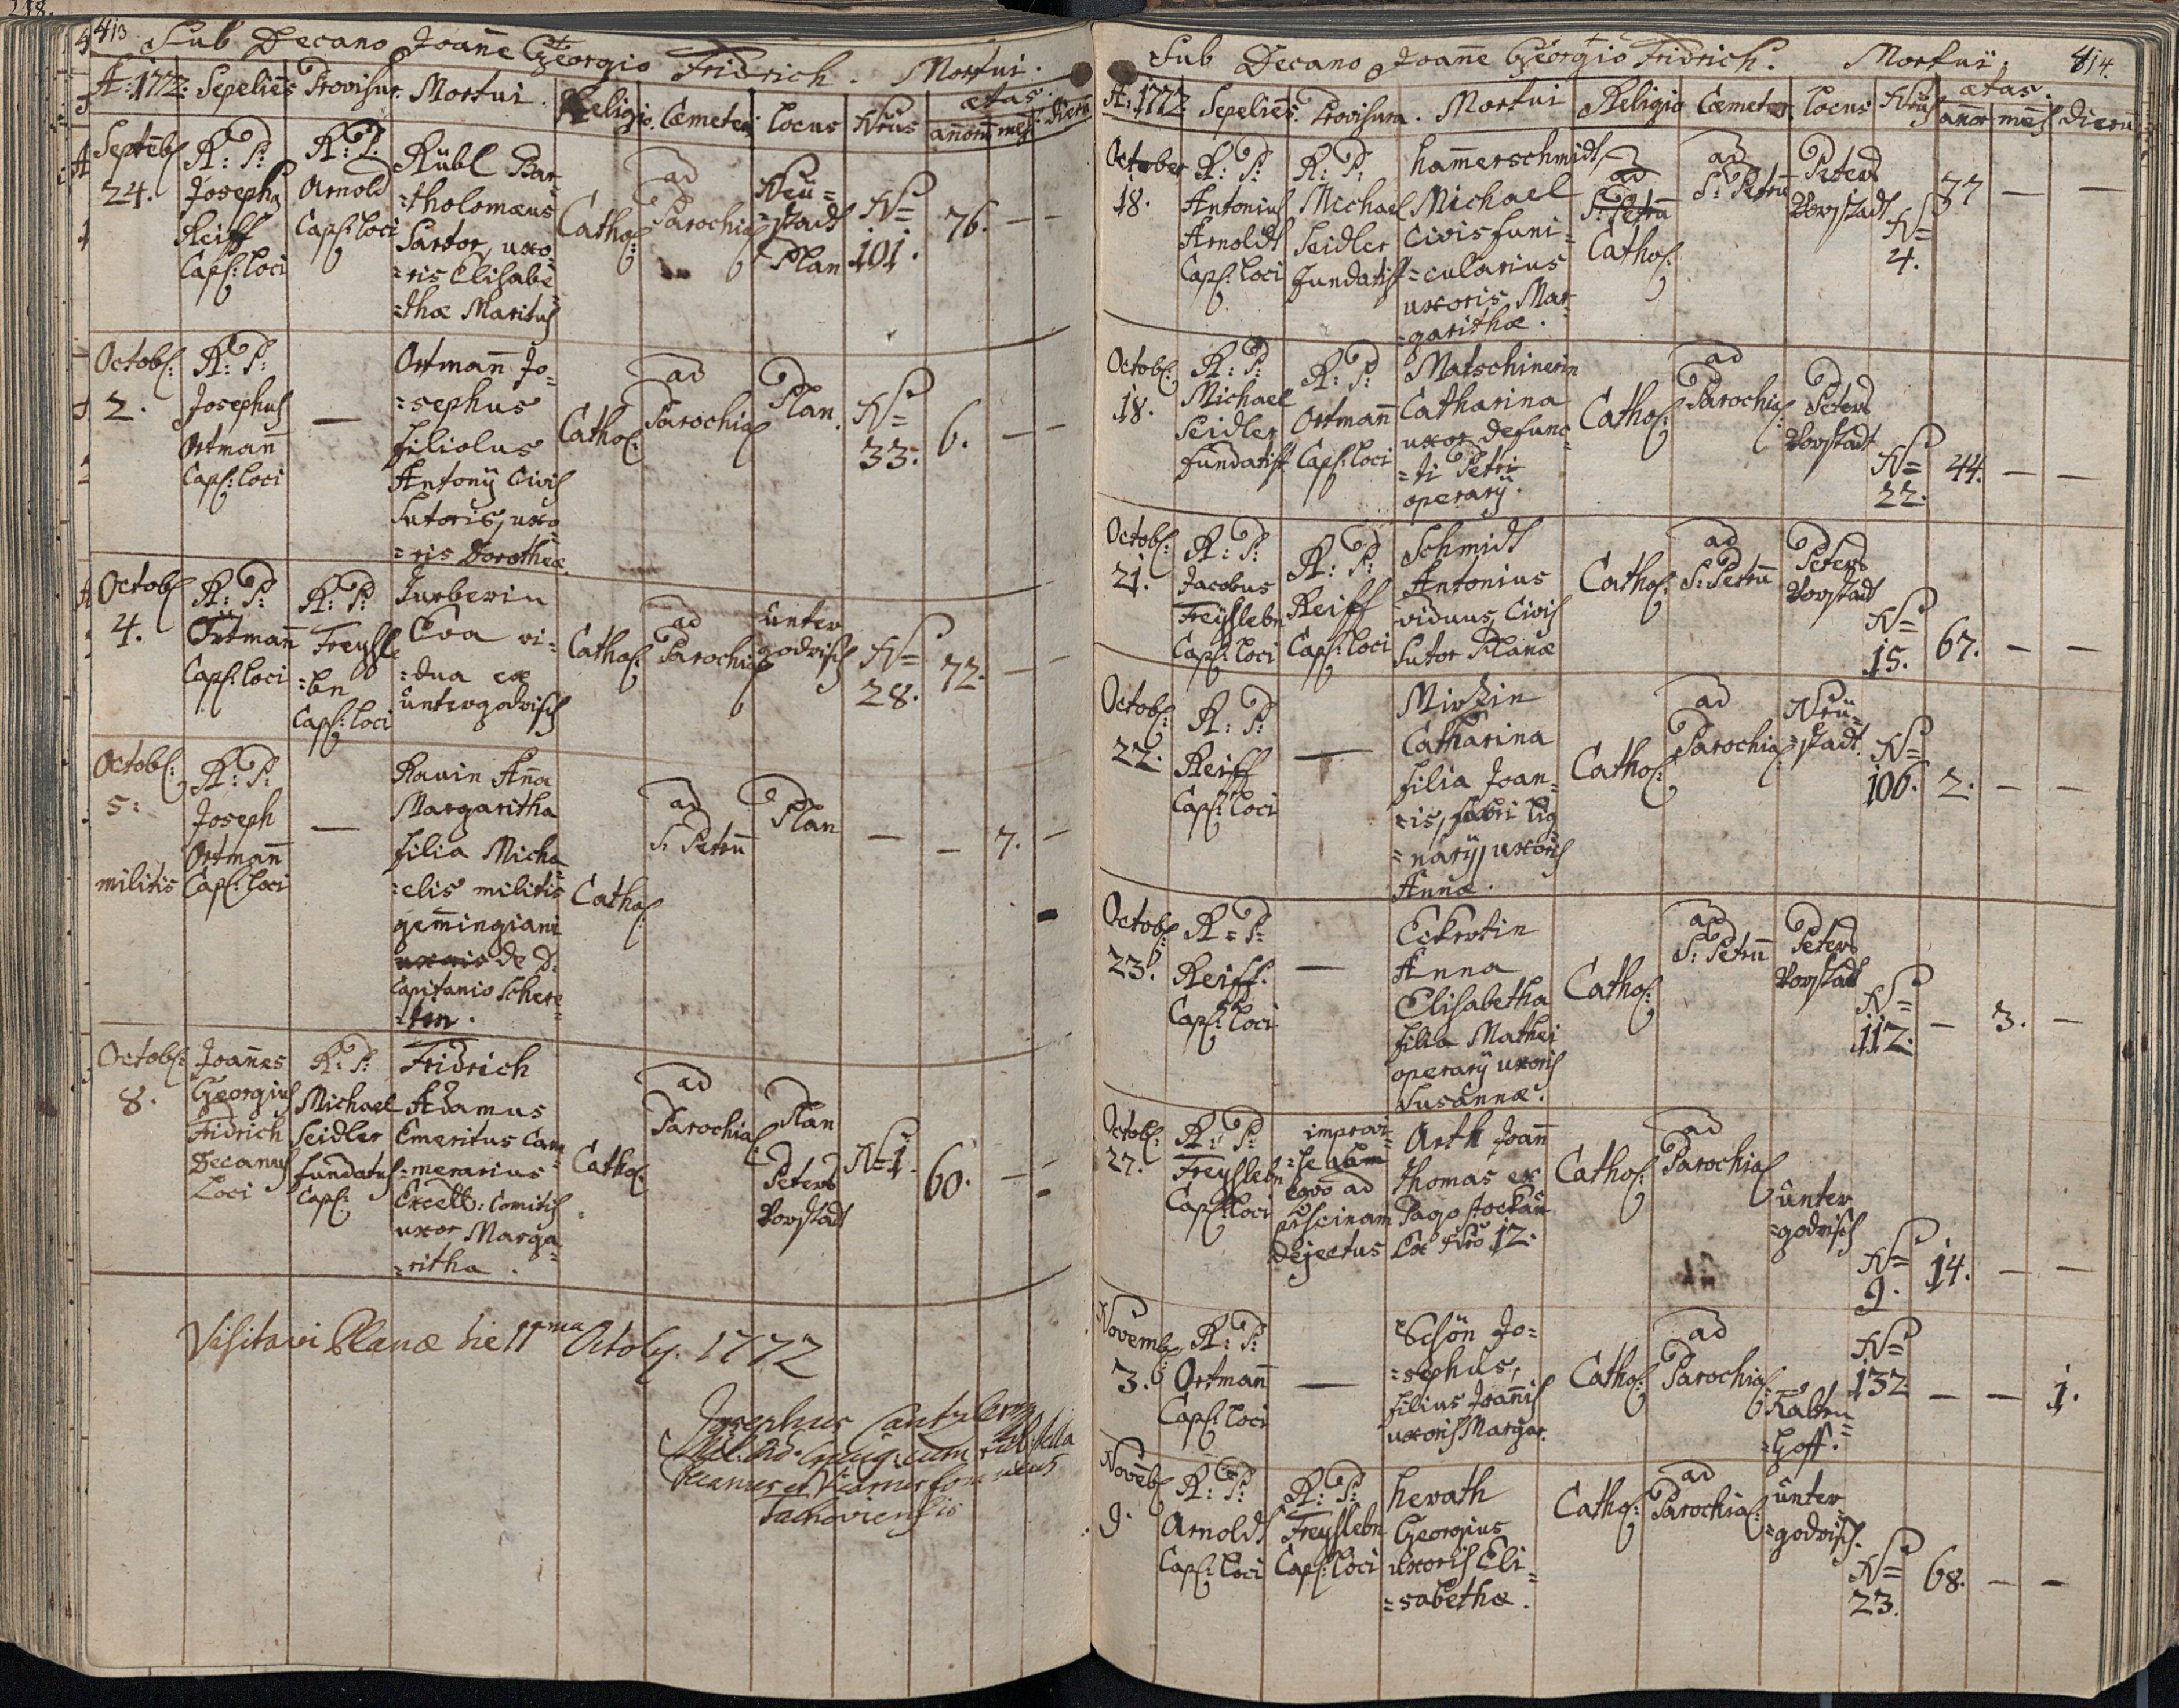 218.
413
Sub Decano Joanne Georgio Fridrich. Mortui.
A: 1772. Sepeliēs Provisur. Mortui. Religio. Cœmeter. Locus Nrus ætas.
annorū mēs. dierū
Septēb. 24.
R: P: Joseph Reiff Cap: Loci
R: P: Arnold Cap: Loci
Rübl Bar-
=tholomæus
Sartor, uxo-
=ris Elisabe
=thæ Maritus
Cathol:
ad Parochia
Neu=
=stadt
Plan
N=
101.
76. — —
Octob: 2.
R: P: Josephus Ortmañ Cap: Loci
—
Ortmañ Jo=
=sephus
filiolus
Antonÿ Civis
Sutoris, uxo
=ris Dorotheæ.
Cathol:
ad Parochia
Plan.
N=
33.
6. — —
Octob 4.
R: P: Ortmañ Cap: Loci
R: P: Freysle
=bn
Cap: Loci
Eva vi=
=dua ex
untergodrisch
Cathol:
ad Parochia
unter
godrisch
N=
28.
72. — —
Octob: 5:
militis
R: P: Joseph Ortmañ Cap: Loci
—
Ravin Aña
Margaritha
filia Micha
=elis militis
gemingiani
uxoris de D:
Capitanio Schere
=ten.
Cathol:
ad S: Petrū
Plan
—
— 7. —
Octob: 8.
Joañes
Georgius
Fridrich
Decanus
Loci
R: P:
Michael
Seidler
fundatus
Cap:
Fridrich
Adamus
Emeritus Cam
=merarius
Excell: Comitis
uxor Marga
=ritha.
Cathol:
ad Parochia
Plan
Peters
Vorstadt
N= 1.
60. — —
Visitavi Planæ die 11ma Octob. 1772
Josephus
Decanus et Vicarius foraneus
Tachoviensis
Sub Decano Joañe Georgio Fridrich. Mortui. 414.
A: 1772 Sepeliēs. Provisura. Mortui Religio Cœmeter Locus Nrus ætas.
añor mēs dierū
October 18.
R: P: Antonius Arnoldt Cap: Loci
R: P: Michael Seidler fundatist
hamerschmidt
Michael
Civis funi=
=cularius
uxoris Mar-
=garithæ.
ad
S: Petrū
Cathol:
ad S: Petrū
Peters
Vorstadt
N=
4.
77 — —
Octob: 18.
R: P: Michael Seidler fundatist
R: P: Ortmañ Cap: Loci
Matschinerin
Catharina
uxor defunc=
=ti Petri
operarÿ.
Cathol:
ad Parochia
Peters
Vorstadt
N=
22.
44. — —
Octob: 21.
R: P: Jacobus Freyslebn Cap: Loci
R: P: Reiff Cap: Loci
Schmidt
Antonius
viduus, Civis
Sutor Planæ
Cathol:
ad S: Petrū
Peters
Vorstadt
N=
15.
67. — —
Octob: 22.
R: P: Reiff Cap: Loci
—
Catharina
filia Joan=
=is, fabri lig
=narÿ, uxoris
Annæ.
Cathol:
ad Parochia
Neu=
=stadt.
N=
106.
2. — —
Octob: 23.
R: P: Reiff. Cap: Loci
—
Eckertin
Anna
Elisabetha
filia Mathei
operarÿ uxoris
Susannæ.
Cathol:
ad S: Petrū
Peters
Vorstadt
N=
112.
— 3. —
Octob: 27.
R: P: Freyslebn Cap: Loci
improvi-
ad
piscinam
dejectus
Arth Joañ
Thomas ex
Pago Stockau
Ex Nro 12.
Cathol:
ad Parochia
unter
=godrisch
N=
9.
14. — —
Novemb 3.
R: P: Ortmañ Cap: Loci
—
Schön Jo=
=sephus,
filius Joañis
uxoris Margar.
Cathol:
ad Parochia
N=
132
Kalten
=hoff.
— — 1.
Novēb 9.
R: P: Arnoldt Cap: Loci
R: P: Freyslebn Cap: Loci
herath
Georgius
uxoris Eli=
=sabethæ.
Cathol:
ad Parochia:
unter
=godrisch.
N=
23.
68. — —